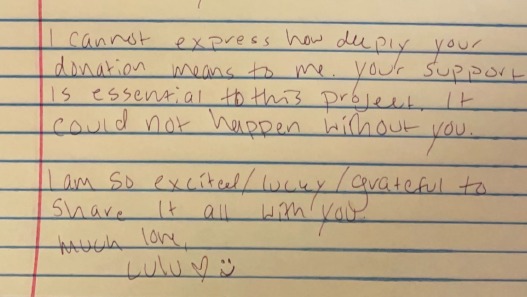 I cannot express how deeply your
donation means to me. your support
is essential to this project. It
could not happen without you.
I am so excited/lucky/grateful to
share it all with you
much love,
Lulu ♡ ☺